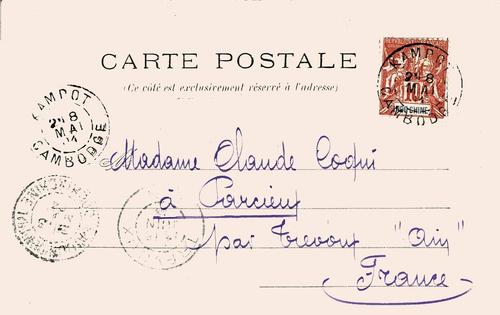 CARTE POSTALE
(Ce côté est exclusivement réservé à l'adresse)
KAMPOT
2E 8
MAI
04
CAMBODGE
KAMPOT
2E 8
MAI
CAMBODGE
INDO-CHINE
10
Madame Claude Coqui
à Parcieux
par Trevoux "Ain"
France
JUIN